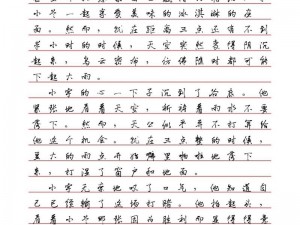 小芳一起享受美味的冰淇淋的画
面。然而，就在距离三点还有不到
半小时的时候，天空突然变得阴沉
起来，乌云密布，仿佛随时都可能
下起大雨。
小宇的心一下子沉到了谷底。他
紧张地看着天空，祈祷着雨水不要
落下。然而，天公似乎不打算给
他这个机会。就在三点整的时候，
豆大的雨点开始噼里啪啦地落下
来，打湿了窗户和地面。
小宇无奈地叹了口气，他知道自
己已经输了这场打赌。他抬起头，
看着小芳那张因为胜利而显得得意